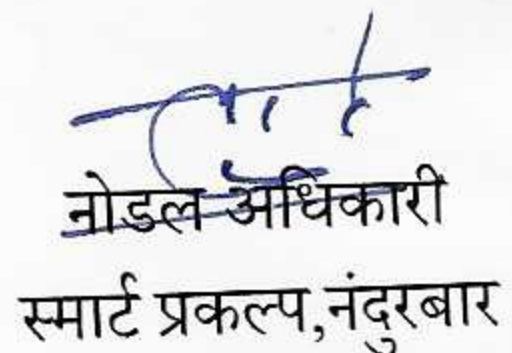 नोडल अधिकारी
स्मार्ट प्रकल्प,नंदुरबार